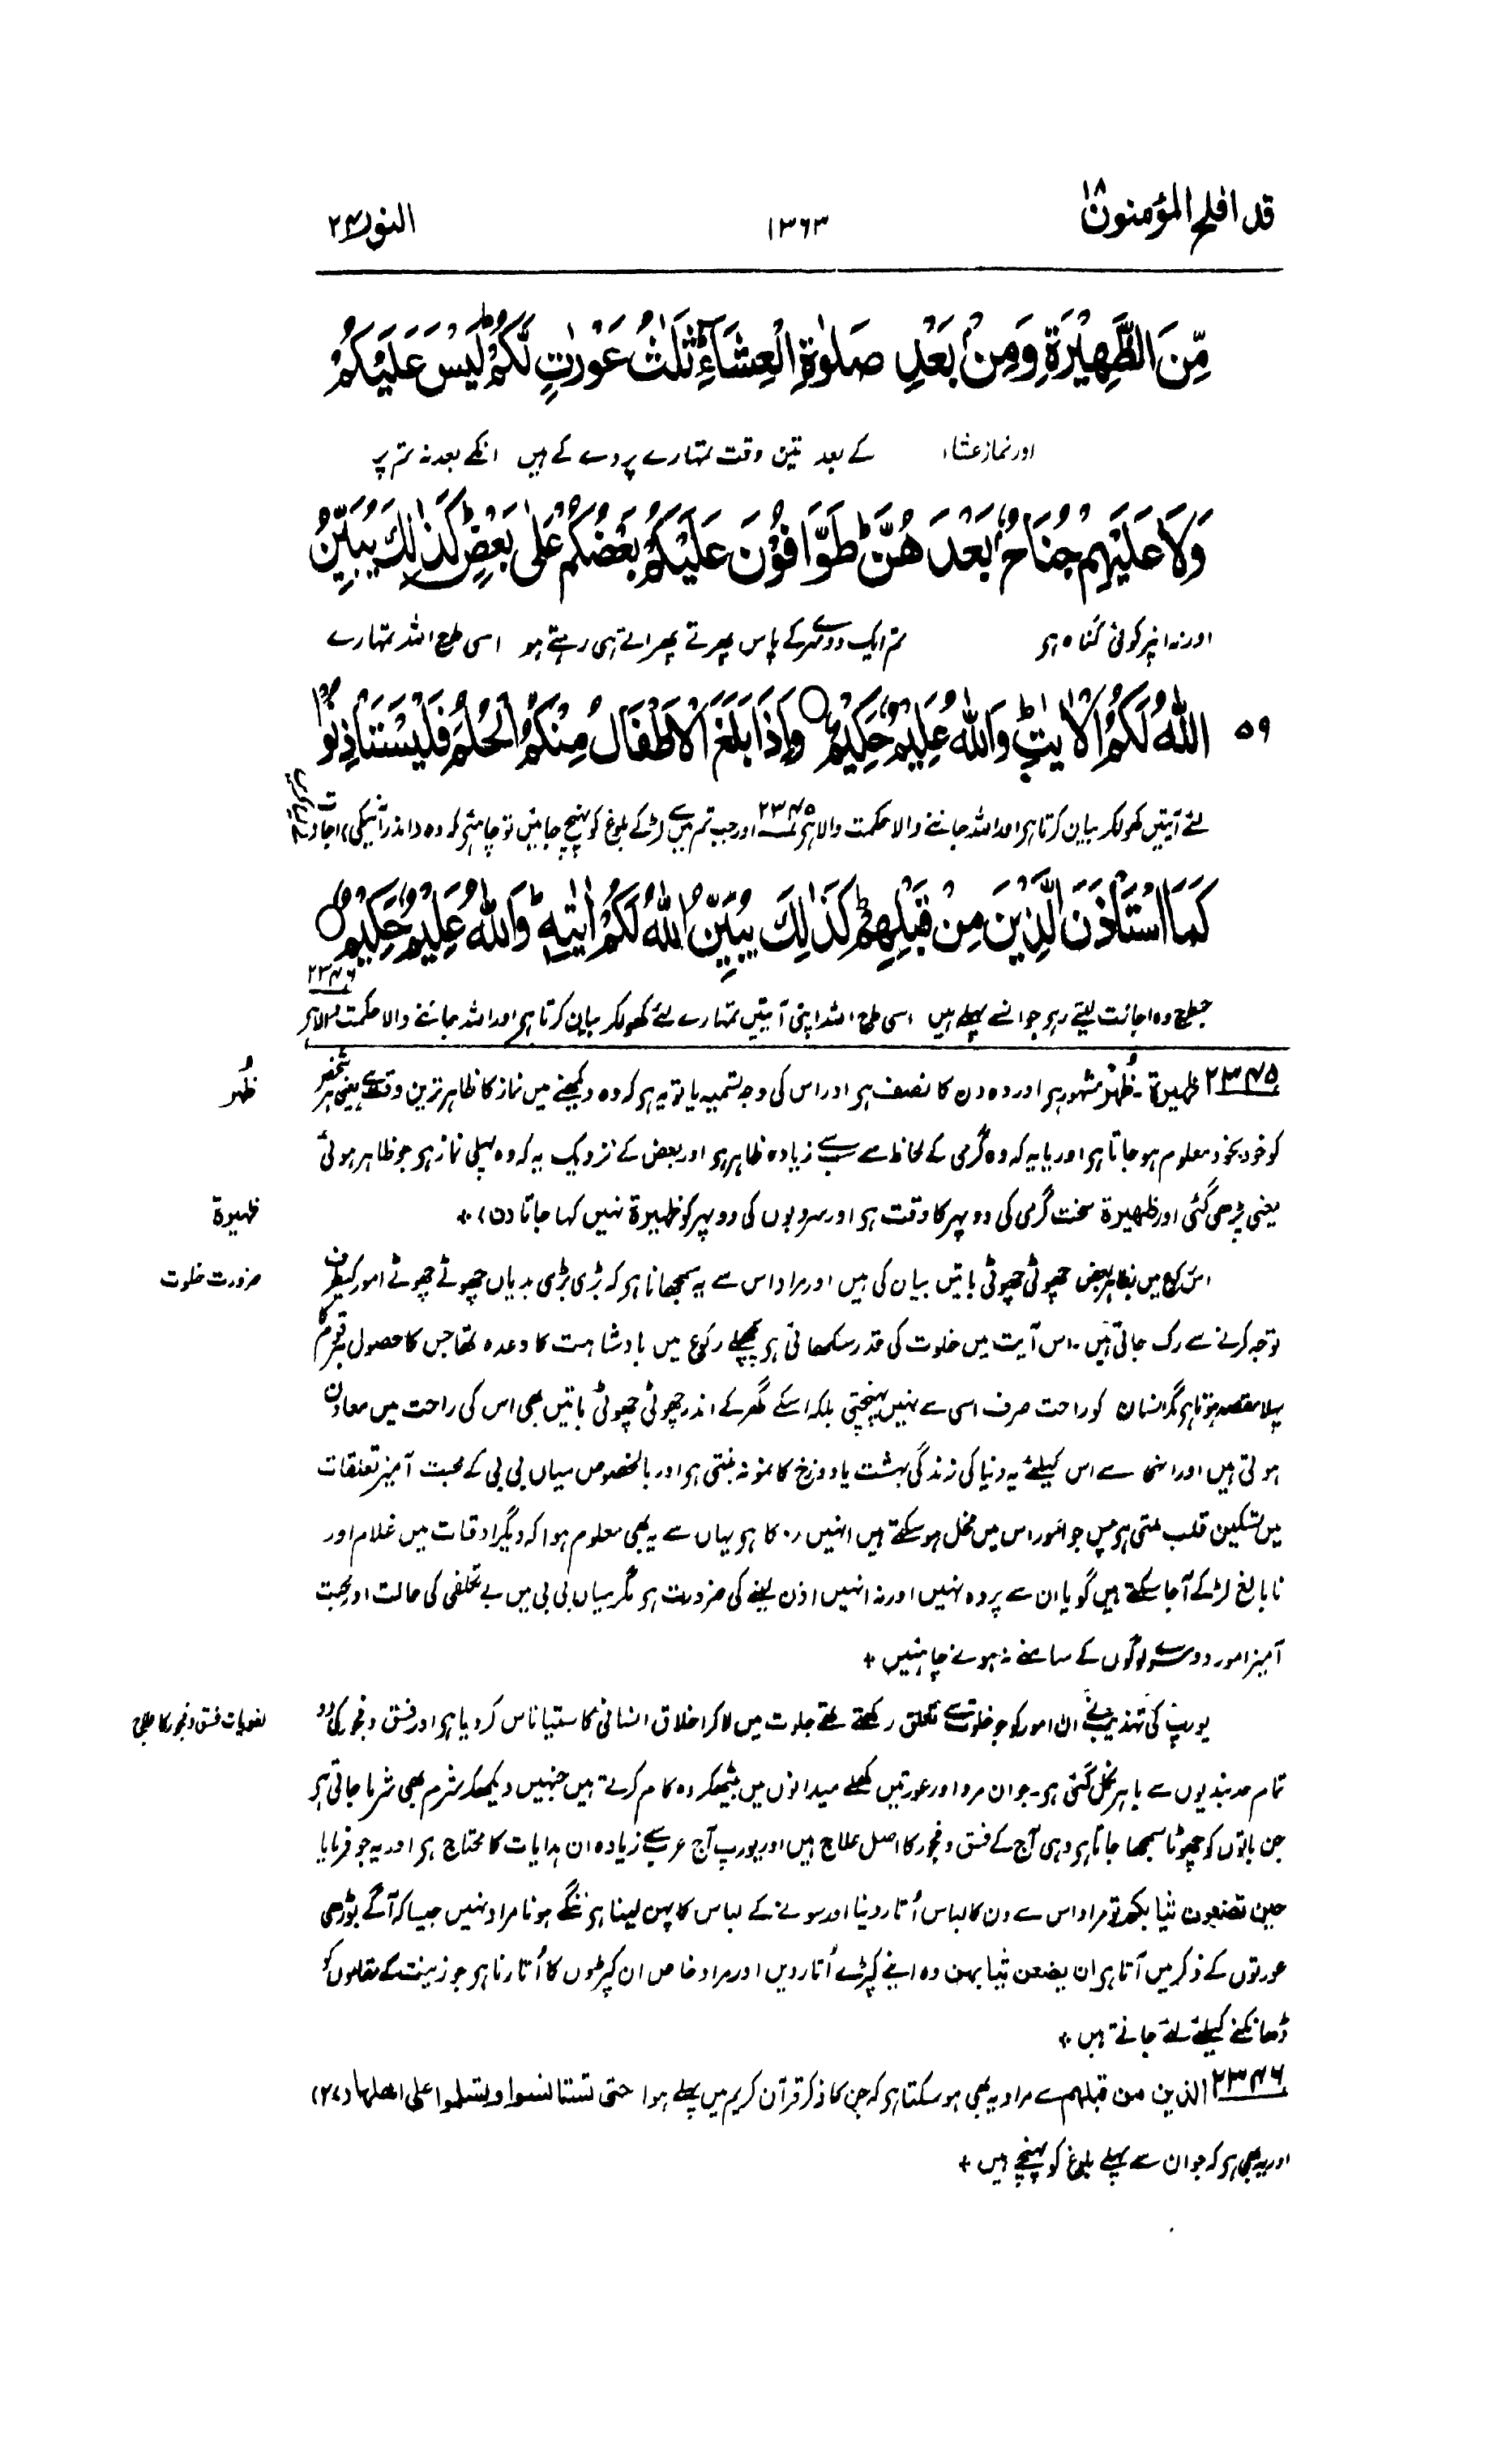 قد افلح المؤمنون ۱۸
۱۳۶۳
النور ۲۴
مِّنَ الظَّهِيْرَةِ وَمِنْۢ بَعْدِ صَلٰوةِ الْعِشَآءِ ؕ ثَلٰثُ عَوْرٰتٍ لَّكُمْ ؕ لَيْسَ عَلَيْكُمْ
اور نماز عشاء کے بعد تین وقت تمہارے پردے کے ہیں انکے بعد نہ تم پر
وَلَا عَلَيْهِمْ جُنَاحٌۢ بَعْدَ هُنَّ ؕ طَوَّافُوْنَ عَلَيْكُمْ بَعْضُكُمْ عَلٰى بَعْضٍ ؕ كَذٰلِكَ يُبَيِّنُ
اور نہ انپر کوئی گناہ ہو تم ایک دوسرے کے پاس پھرتے پھراتے ہی رہتے ہو اسی طرح اللہ تمہارے
۵۹ اللّٰهُ لَكُمُ الْاٰيٰتِ ؕ وَاللّٰهُ عَلِيْمٌ حَكِيْمٌ ○ وَاِذَا بَلَغَ الْاَطْفَالُ مِنْكُمُ الْحُلُمَ فَلْيَسْتَاْذِنُوْا
لئے آیتیں کھولکر بیان کرتا ہو اور اللہ جاننے والا حکمت والا ہو ۲۳۴۵ اور جب تم میں سے لڑکے بلوغ کو پہنچ جائیں تو چاہئے کہ وہ (اندر آنیکی) اجازت
كَمَا اسْتَاْذَنَ الَّذِيْنَ مِنْ قَبْلِهِمْ ؕ كَذٰلِكَ يُبَيِّنُ اللّٰهُ لَكُمْ اٰيٰتِهٖ ؕ وَاللّٰهُ عَلِيْمٌ حَكِيْمٌ ○
۲۳۴۶
جسطرح وہ اجازت لیتے رہے جو انسے پہلے ہیں اسی طرح اللہ اپنی آیتیں تمہارے لئے کھولکر بیان کرتا ہو اور اللہ جاننے والا حکمت والا ہو
۲۳۴۵ ظہیرۃ ۔ ظُہْر مشہور ہو اور وہ دن کا نصف ہو اور اس کی وجہ تسمیہ یا تو یہ ہو کہ وہ دیکھنے میں نماز کا ظاہر ترین وقت ہے یعنی ہر شخص
ظُہر
کو خود بخود معلوم ہو جاتا ہو اور یا یہ کہ وہ گرمی کے لحاظ سے سب سے زیادہ ظاہر ہو اور بعض کے نزدیک یہ کہ وہ پہلی نماز ہو جو ظاہر ہوئی
یعنی پڑھی گئی اور ظہیرۃ سخت گرمی کی دوپہر کا وقت ہو اور سردیوں کی دوپہر کو ظہیرۃ نہیں کہا جاتا (ن) +
ظہیرۃ
اس رکوع میں بظاہر بعض چھوٹی چھوٹی باتیں بیان کی ہیں اور مراد اس سے یہ سمجھانا ہو کہ بڑی بڑی بدیاں چھوٹے چھوٹے امور کیطرف
ضرورت خلوت
توجہ کرنے سے رک جاتی ہیں ۔ اس آیت میں خلوت کی قدر سکھائی ہو پچھلے رکوع میں بادشاہت کا وعدہ تھا جس کا حصول ہر قوم کا
پہلا مقصد ہوتا ہو مگر انسان کو راحت صرف اسی سے نہیں پہنچتی بلکہ اسکے گھر کے اندر چھوٹی چھوٹی باتیں بھی اس کی راحت میں معاون
ہوتی ہیں اور انہی سے اس کیلئے یہ دنیا کی زندگی بہشت یا دوزخ کا نمونہ بنتی ہو اور بالخصوص میاں بی بی کے محبت آمیز تعلقات
میں تسکین قلب ملتی ہو پس جو امور اس میں مخل ہوسکتے ہیں انہیں روکا ہو یہاں سے یہ بھی معلوم ہوا کہ دیگر اوقات میں غلام اور
نابالغ لڑکے آجا سکتے ہیں گویا ان سے پردہ نہیں اور نہ انہیں اذن لینے کی ضرورت ہو مگر میاں بی بی میں بے تکلفی کی حالت اور محبت
آمیز امور دوسرے لوگوں کے سامنے نہ ہونے چاہئیں +
یورپ کی تہذیب نے ان امور کو جو خلوت سے تعلق رکھتے تھے جلوت میں لاکر اخلاق انسانی کا ستیاناس کر دیا ہو اور فسق و فجور کی رو
لغویات فسق و فجور کا علاج
تمام حد بندیوں سے باہر نکل گئی ہو ۔ جوان مرد اور عورتیں کھلے میدانوں میں بیٹھکر وہ کام کرتے ہیں جنہیں دیکھکر شرم بھی شرما جاتی ہو
جن باتوں کو چھوٹا سمجھا جاتا ہو وہی آج کے فسق و فجور کا اصل علاج ہیں اور یورپ آج عرب سے زیادہ ان ہدایات کا محتاج ہو اور یہ جو فرمایا
حین تضعون ثیابکم تو مراد اس سے دن کا لباس اُتار دینا اور سونے کے لباس کا پہن لینا ہو ننگے ہونا مراد نہیں جیسا کہ آگے بوڑھی
عورتوں کے ذکر میں آتا ہو ان یضعن ثیابہن وہ اپنے کپڑے اُتار دیں اور مراد خاص ان کپڑوں کا اُتارنا ہو جو زینت کے مقاموں کو
ڈھانکنے کیلئے لئے جاتے ہیں +
۲۳۴۶ الذین من قبلہم سے مراد یہ بھی ہوسکتا ہو کہ جن کا ذکر قرآن کریم میں پہلے ہوا حتی تستانسوا وتسلموا علی اھلہا (۲۷)
اور یہ بھی ہو کہ جو ان سے پہلے بلوغ کو پہنچے ہیں +